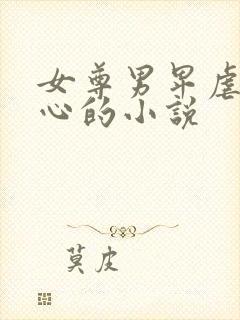 女尊男卑虐
心的小说
莫皮